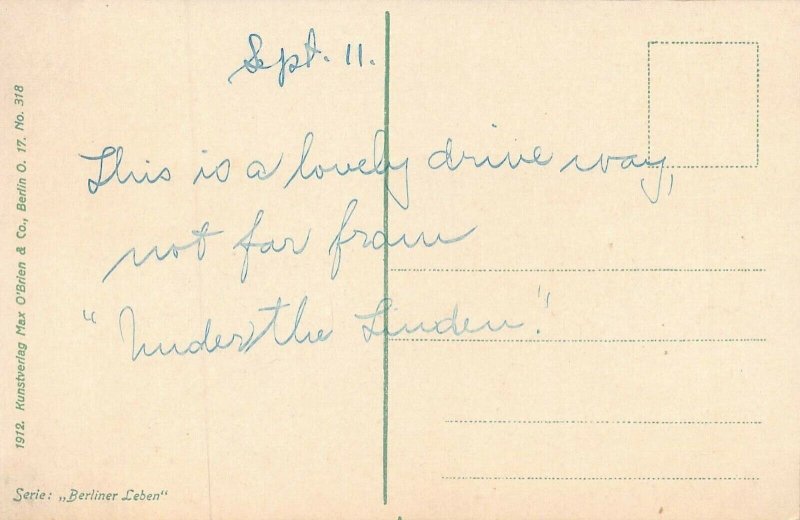 Sept. 11.
This is a lovely drive way,
not far from
"Under the Linden."
1912. Kunstverlag Max O'Brien & Co., Berlin O. 17. No. 318
Serie: „Berliner Leben"